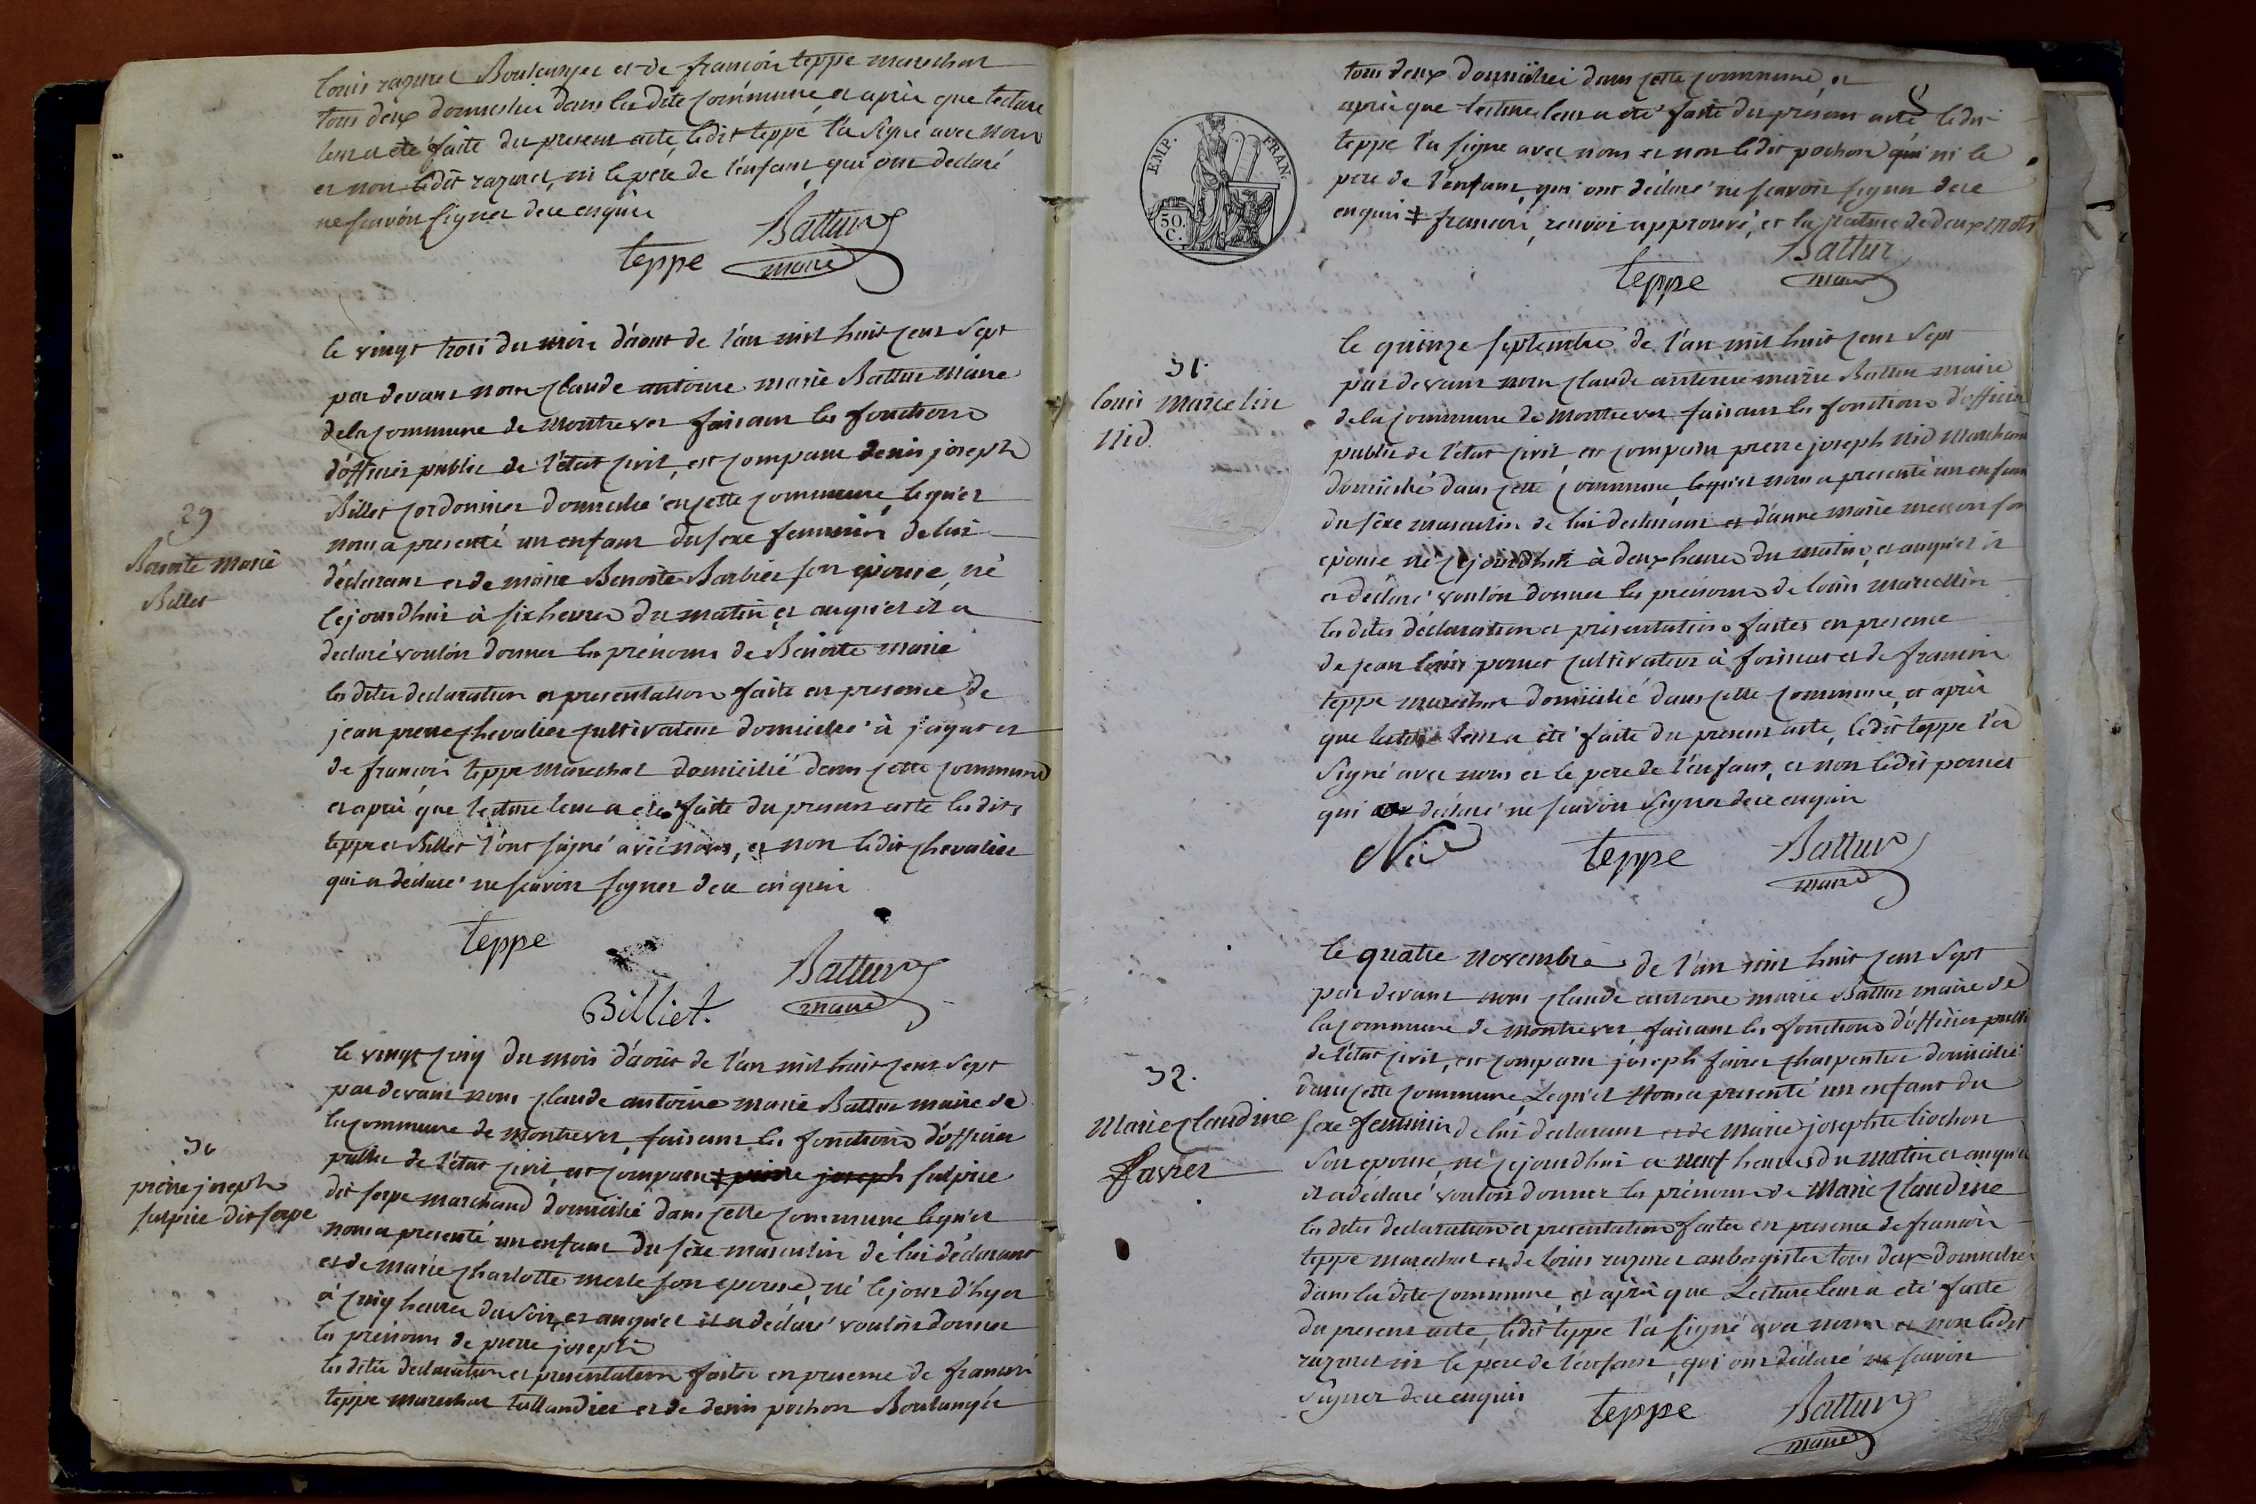 louis razurel Boulanger et de francois teppe marechal
tous deux domicilies dans la dite commune et après que lecture
leur a été faite du present acte, ledit teppe l'a signé avec nous
et non ledit razurel, ni le père de l'enfant qui ont declaré
ne scavoir signer de ce enquis
teppe Battur
maire
29
Benoite Marie
Billet
le vingt trois du mois d'aout de l'an mil huit cent sept
par devant nous claude antoine marie Battur maire
de la commune de Montrevel faisant les fonctions
d'officier public de l'état civil, est comparu denis joseph
Billet cordonnier domicilié en cette commune, lequel
nous a presenté un enfant du sexe feminin de lui
déclarant et de marie Benoite Barbier son épouse, né
cejourdhui à six heures du matin et auquel il a
declaré vouloir donner les prénoms de Benoite Marie
les dites declaration et presentation faite en presence de
jean pierre chevalier cultivateur domicilié à jayat et
de francois teppe marechal domicilié dans cette commune
et après que lecture leur a été faite du present acte les dits
teppe et Billet l'ont signé avec nous, et non ledit chevalier
qui a déclaré ne scavoir signer de ce enquis
teppe
Battur
Billiet. maire
30
pierre joseph
sulpice dit serpe
le vingt cinq du mois d'aout de l'an mil huit cent sept
par devant nous claude antoine marie Battur maire de
la commune de Montrevel, faisant les fonctions d'officier
public de l'état civil, est comparu ‡ pierre joseph sulpice
dit serpe marchand domicilié dans cette commune, lequel
nous a presenté un enfant du sexe masculin de lui déclarant
et de marie charlotte merle son epouse, né le jour d'hyer
à cinq heures du soir, et auquel il a déclaré vouloir donner
les prénoms de pierre joseph
les dites declaration et presentation faite en presence de francois
teppe marechal tallandier et de denis pochon Boulanger
EMP. FRAN.
50.
C.
tous deux domiciliés dans cette commune, et
après que lecture leur a été faite du present acte ledit
teppe l'a signé avec nous et non ledit pochon qui ni le
pere de l'enfant, qui ont déclaré ne scavoir signer de ce
enquis ‡ francois, renvoi approuvé, et la rature de deux mots
Battur
teppe maire
31.
louis marcelin
Nid.
le quinze septembre de l'an mil huit cent sept
par devant nous claude antoine marie Battur maire
de la commune de Montrevel faisant les fonctions d'officier
public de l'état civil est comparu pierre joseph Nid marchand
domicilié dans cette commune, lequel nous a presenté un enfant
du sexe masculin de lui declarant et d'anne marie son
epouse né cejourdhui à deux heures du matin, et auquel il
a déclaré vouloir donner les prénoms de louis marcellin
les dites déclaration et présentation faites en presence
de jean louis pornet cultivateur à foissiat et de francois
teppe marechal domicilié dans cette commune, et après
que lecture leur a été faite du present acte, ledit teppe l'a
signé avec nous et le pere de l'enfant, et non ledit pornet
qui a declaré ne scavoir signer de ce enquis
Nid teppe Battur
maire
32.
Marie Claudine
favier
le quatre Novembre de l'an mil huit cent sept
par devant nous claude antoine marie Battur maire de
la commune de Montrevel, faisant les fonctions d'officier public
de l'état civil, est comparu joseph favier charpentier domicilié
dans cette commune, Lequel Nous a presenté un enfant du
sexe feminin de lui declarant et de Marie josephte tiochon
son epouse, né cejourdhui a neuf heures du matin et auquel
il a déclaré vouloir donner les prénoms de Marie Claudine
les dites declaration et presentation faites en presence de francois
teppe marechal et de louis razurel aubergiste tous deux domiciliés
dans la dite commune, et après que Lecture leur a été faite
du present acte, ledit teppe l'a signé avec nous et non ledit
razurel ni le pere de l'enfant, qui ont déclaré ne scavoir
signer de ce enquis
teppe Battur
maire